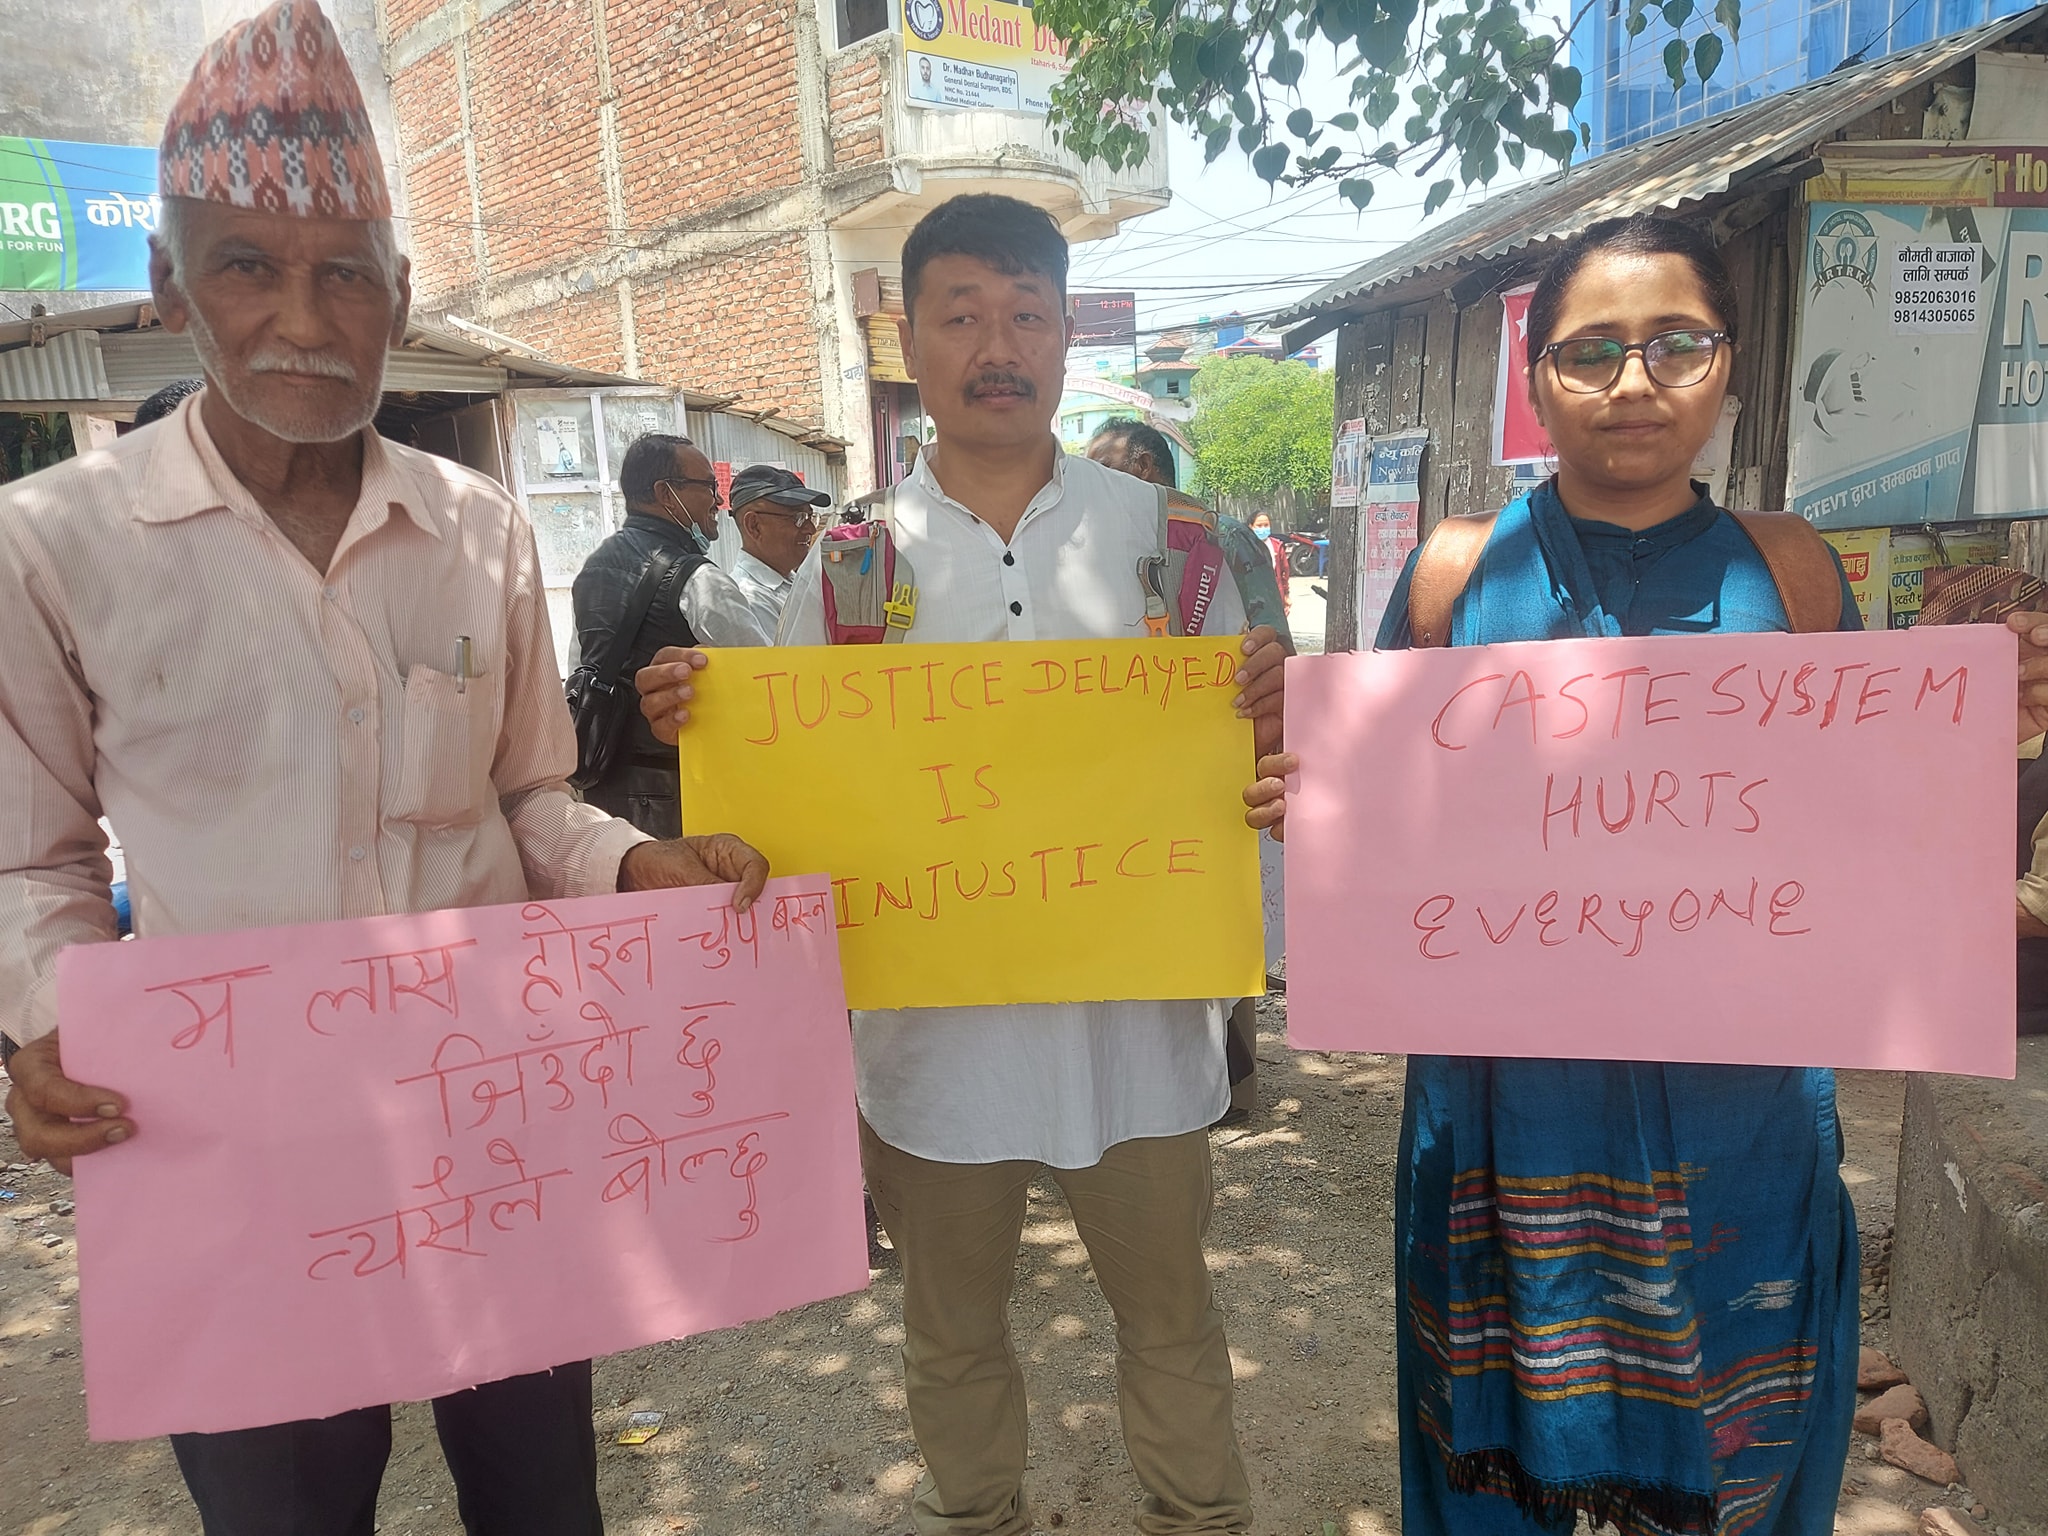 Medant De
Itahari-6, Sun
Dr. Madhav Budhanagariya
General Dental Surgeon, BDS.
NMC No. 21444
Nobel Medical College
Phone No
RG
FOR FUN
12:31PM
नौमती बाजाको
लागि सम्पर्क
9852063016
9814305065
RTRK
CTEVT द्वारा सम्बन्धन प्राप्त
Tanluhu
JUSTICE DELAYED
IS
INJUSTICE
CASTE SYSTEM
HURTS
EVERYONE
म लास होइन चुप बस्न
जिउँदो छु
त्यसैले बोल्छु